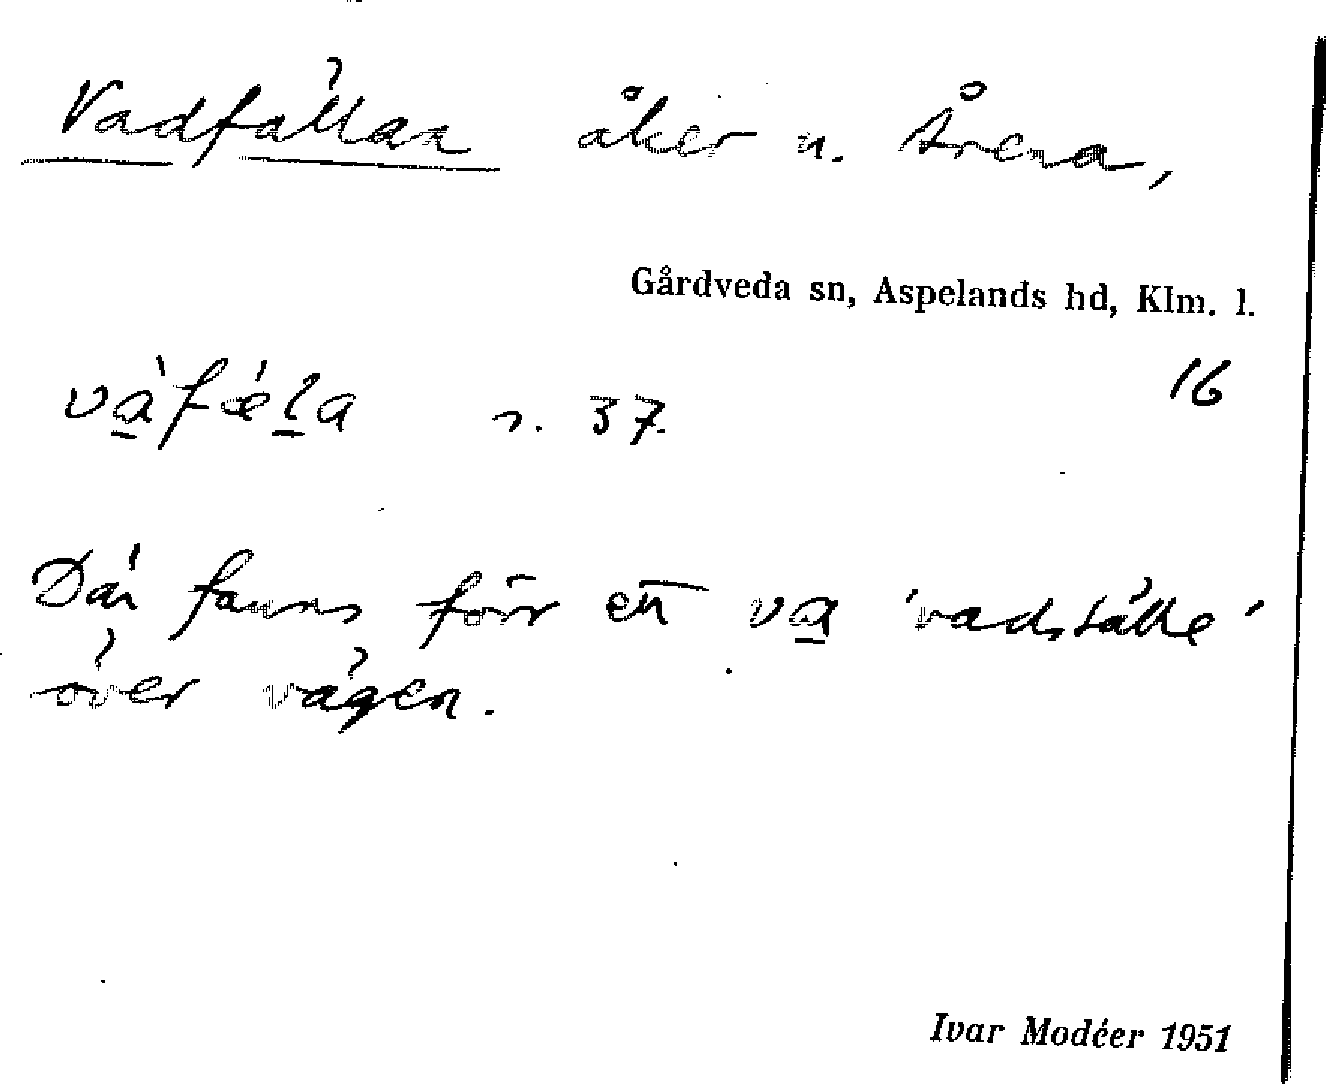 Vadfällan åker n. Årena,
Gårdveda sn, Aspelands hd, Klm. l.
16
và̱fǽḻa n. 37.
Där fanns förr ett va̱ 'vadställe'
över vägen.
Ivar Modéer 1951